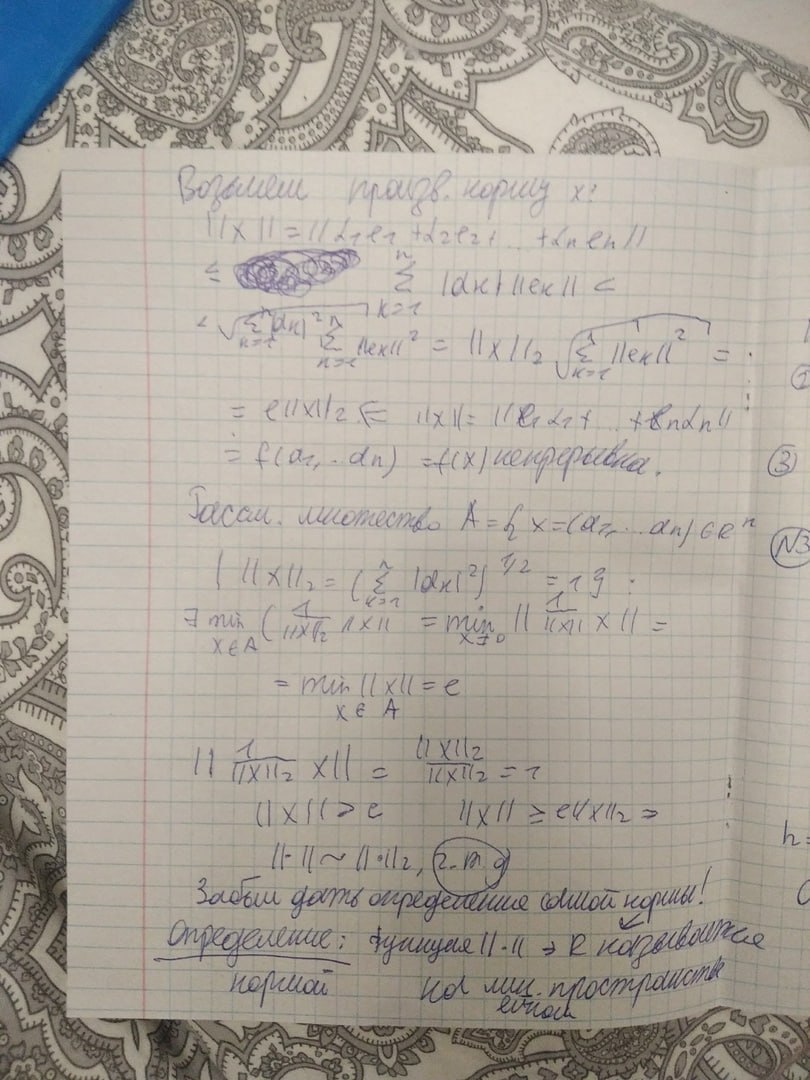 Возьмем произв. норму x:
||x|| = ||α₁e₁ + α₂e₂ + ... + αₙeₙ||
≤ ∑ₖ₌₁ⁿ |αₖ| ||eₖ|| ≤
≤ √(∑ₖ₌₁ⁿ |αₖ|² ∑ₖ₌₁ⁿ ||eₖ||²) = ||x||₂ √(∑ₖ₌₁ⁿ ||eₖ||²) =
= c||x||₂ ||x|| = ||e₁α₁ + ... + eₙαₙ||
= f(α₁, ... αₙ) = f(x) непрерывна.
Рассм. множество A = { x = (α₁, ... αₙ) ∈ Rⁿ
| ||x||₂ = (∑ₖ₌₁ⁿ |αₖ|²)^1/2 = 1 } :
∃ min x∈A (1/||x||₂ ||x|| = min x≠0 || 1/||x|| x || =
= min x∈A ||x|| = c
|| 1/||x||₂ x || = ||x||₂/||x||₂ = 1
||x|| ≥ c ||x|| ≥ c||x||₂ ⇒
||·|| ~ ||·||₂, ч.т.д
Забыл дать определение самой нормы!
Определение: функция ||·|| → R называется
нормой над лин. пространства
③
N3